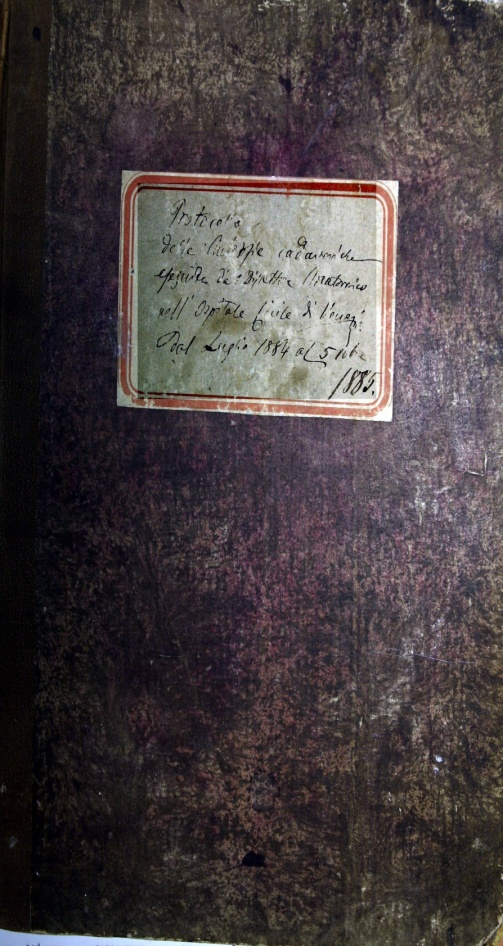 Protocollo
delle Autopsie cadaveriche
eseguite dal Dissettore Anatomico
nell' Ospitale Civile di Venezia
Dal Luglio 1884 al 5
1885.